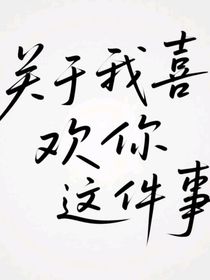 关于我喜
欢你
这件事